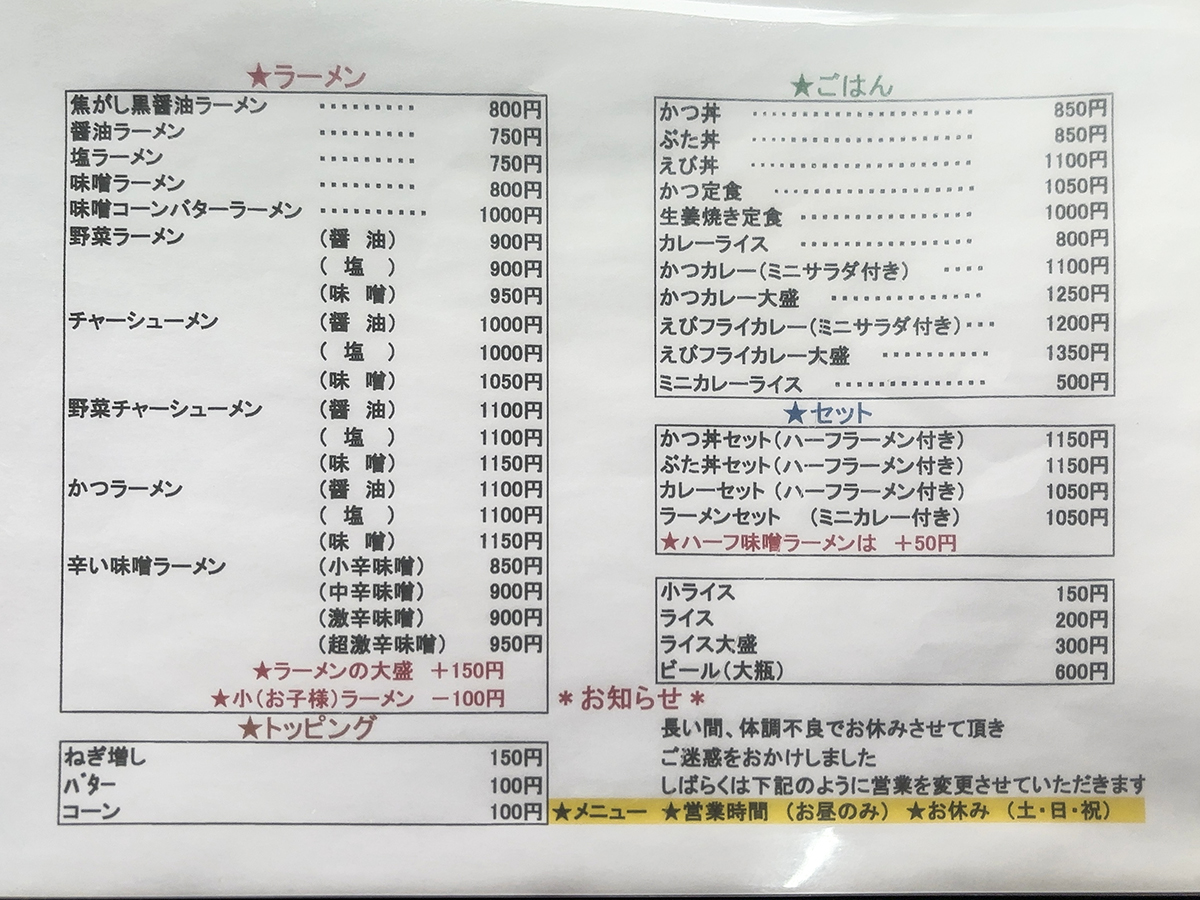 ★ラーメン
焦がし黒醤油ラーメン ‥‥‥‥‥ 800円
醤油ラーメン ‥‥‥‥‥ 750円
塩ラーメン ‥‥‥‥‥ 750円
味噌ラーメン ‥‥‥‥‥ 800円
味噌コーンバターラーメン ‥‥‥‥‥ 1000円
野菜ラーメン (醤 油) 900円
( 塩 ) 900円
(味 噌) 950円
チャーシューメン (醤 油) 1000円
( 塩 ) 1000円
(味 噌) 1050円
野菜チャーシューメン (醤 油) 1100円
( 塩 ) 1100円
(味 噌) 1150円
かつラーメン (醤 油) 1100円
( 塩 ) 1100円
(味 噌) 1150円
辛い味噌ラーメン (小辛味噌) 850円
(中辛味噌) 900円
(激辛味噌) 900円
(超激辛味噌) 950円
★ラーメンの大盛 +150円
★小(お子様)ラーメン -100円
★トッピング
ねぎ増し 150円
バター 100円
コーン 100円
★ごはん
かつ丼 ‥‥‥‥‥‥‥‥‥‥ 850円
ぶた丼 ‥‥‥‥‥‥‥‥‥‥ 850円
えび丼 ‥‥‥‥‥‥‥‥‥‥ 1100円
かつ定食 ‥‥‥‥‥‥‥‥‥ 1050円
生姜焼き定食 ‥‥‥‥‥‥‥‥ 1000円
カレーライス ‥‥‥‥‥‥‥‥ 800円
かつカレー(ミニサラダ付き) ‥‥ 1100円
かつカレー大盛 ‥‥‥‥‥‥‥ 1250円
えびフライカレー(ミニサラダ付き)‥・ 1200円
えびフライカレー大盛 ‥‥‥‥‥ 1350円
ミニカレーライス ‥‥‥‥‥‥‥ 500円
★セット
かつ丼セット(ハーフラーメン付き) 1150円
ぶた丼セット(ハーフラーメン付き) 1150円
カレーセット (ハーフラーメン付き) 1050円
ラーメンセット (ミニカレー付き) 1050円
★ハーフ味噌ラーメンは +50円
小ライス 150円
ライス 200円
ライス大盛 300円
ビール(大瓶) 600円
*お知らせ*
長い間、体調不良でお休みさせて頂き
ご迷惑をおかけしました
しばらくは下記のように営業を変更させていただきます
★メニュー ★営業時間 (お昼のみ) ★お休み (土・日・祝)